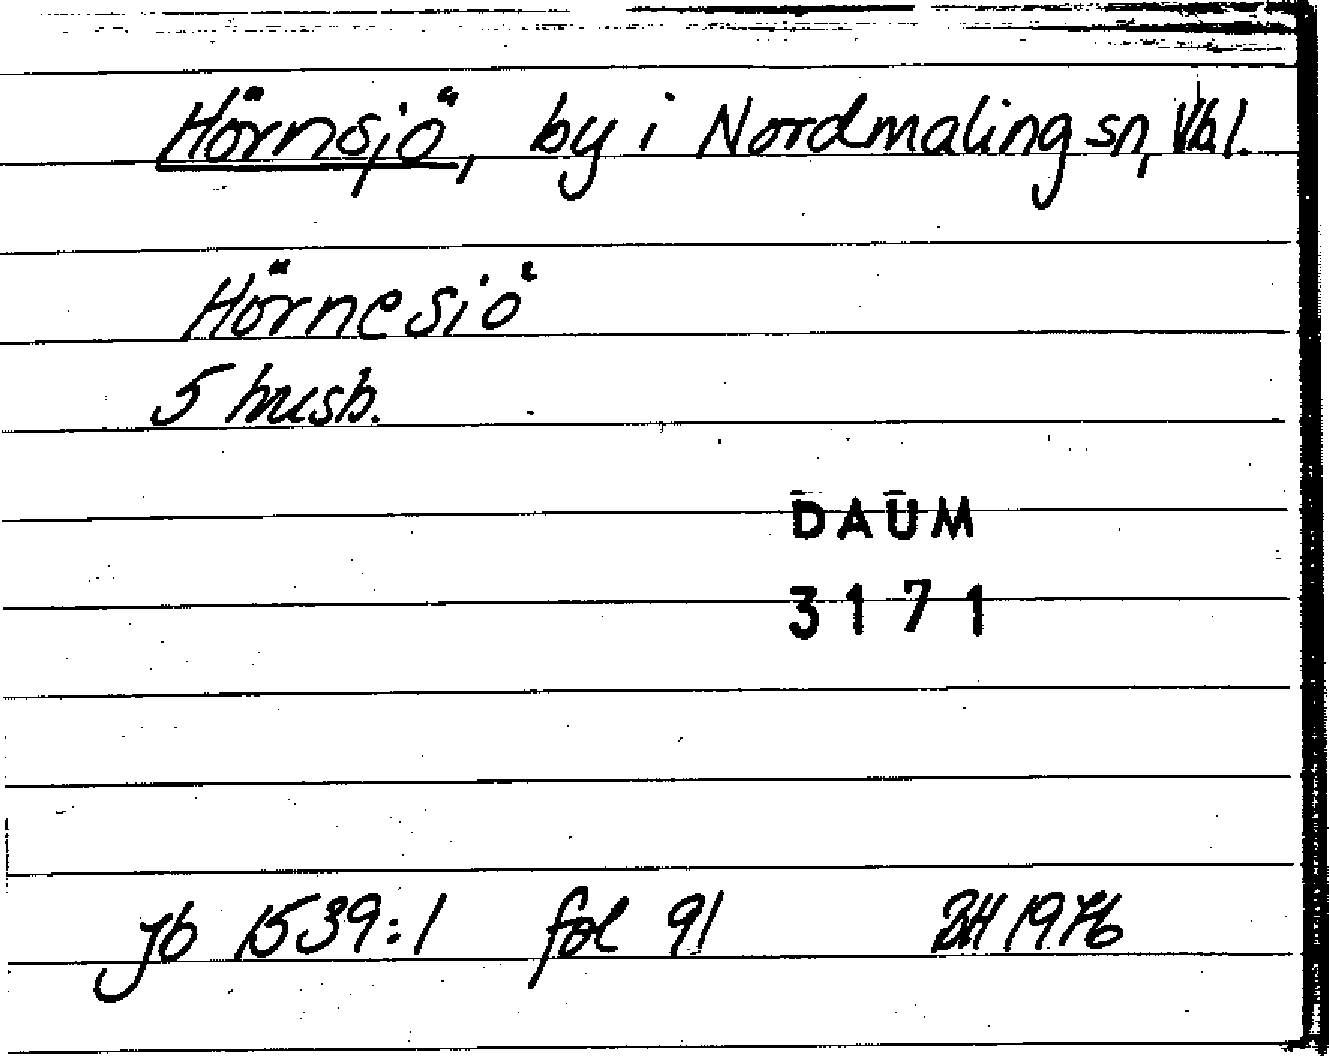 Hörnsjö, by i Nordmaling sn, Vbl.
Hörnesiö
5 husb.
DAUM
3171
Jb 1539:1 fol 91 BH 1976